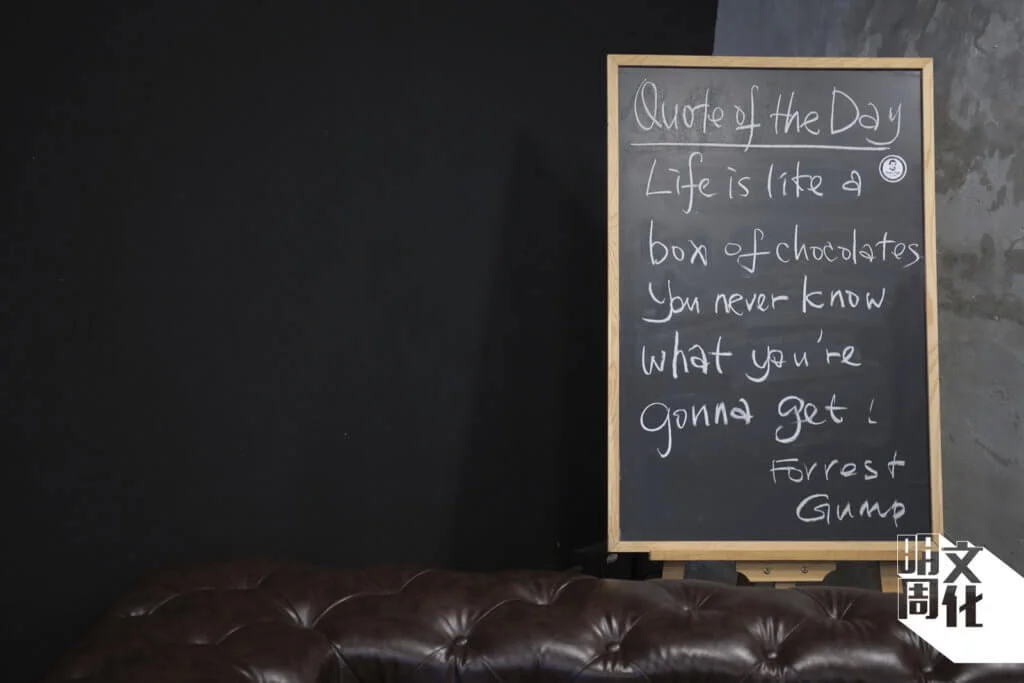 Quote of the Day
Life is like a
box of chocolates
you never know
what you're
gonna get !
Forrest
Gump
明周
文化